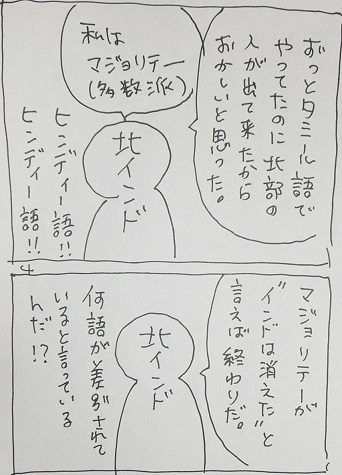 ずっとタミール語で
やってたのに北部の
人が出て来たから
おかしいと思った。
私は
マジョリテー
(多数派)
北インド
ヒンディー語!!
ヒンディー語!!
4
マジョリテーが
“インドは消えた”と
言えば終わりだ。
北インド
何語が差別されて
いると言っている
んだ!?